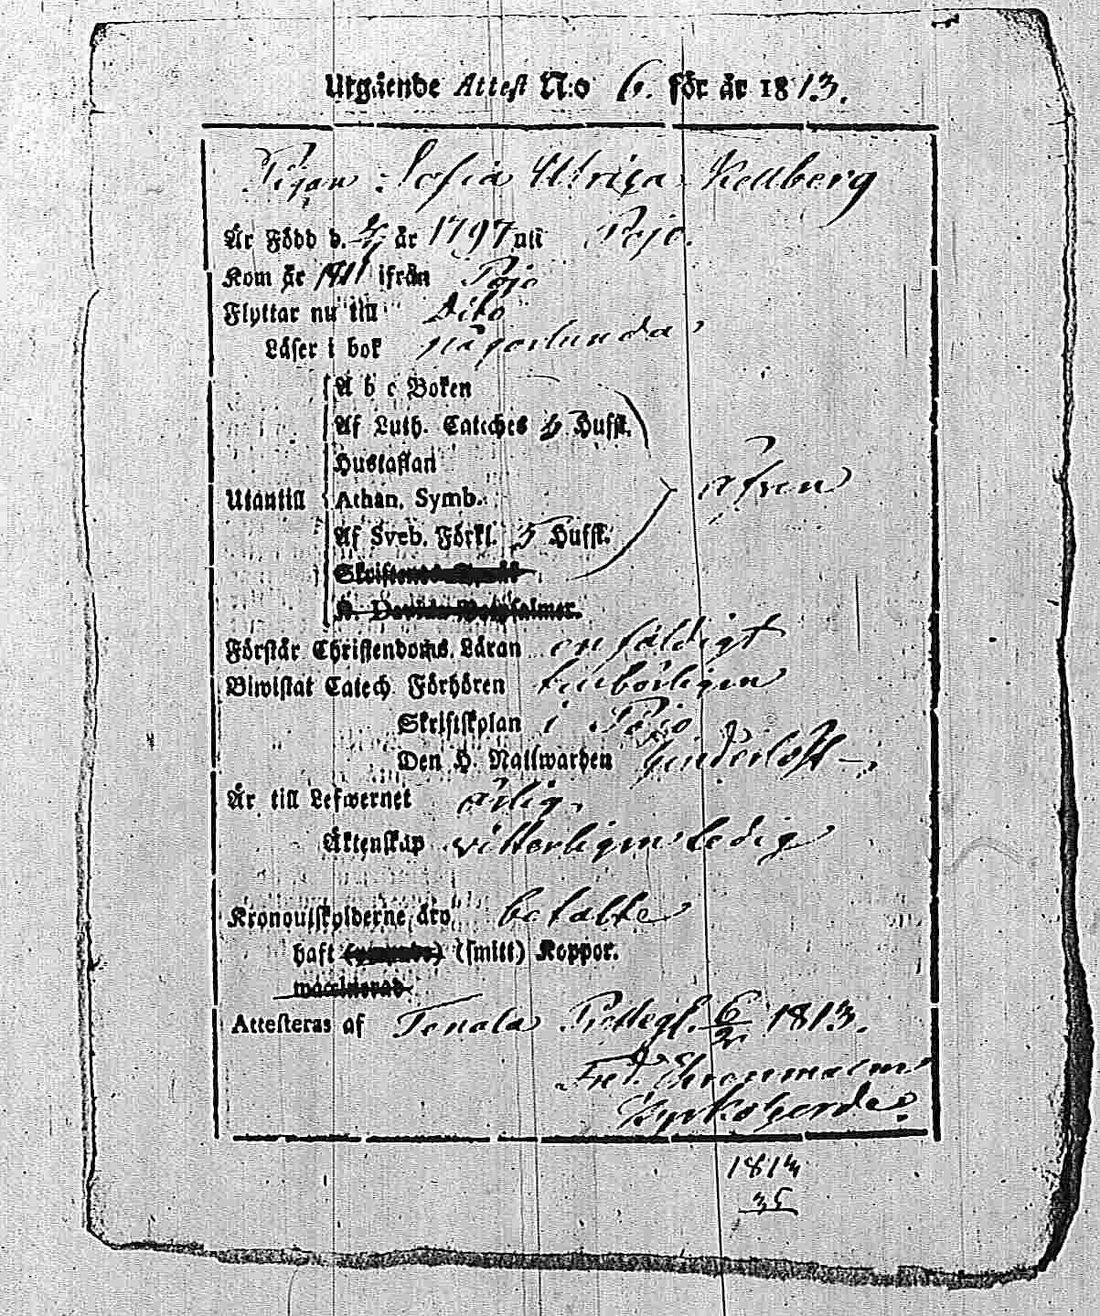 Utgående Attest N:o 6. för år 1813.
Pigan Sofia Ulrica Kellberg
Är Född d. år 1797 uti Pojo.
Kom år 1811 ifrån Pojo
Flyttar nu till Dito
Läser i bok någorlunda
A b c Boken
Af Luth. Cateches 5 Hufst.
Hustaflan
Utantill Athan. Symb. äfven
Af Sveb. Förkl. 5 Hufst.
Förstår Christendoms Läran enfäldigt
Biwistat Catech. Förhören tillbörligen
Skriftskolan i Pojo
Den H. Nattwarden
Är till Lefwernet ärlig
Äktenskap vitterligen ledig
Kronoutskylderne äro betalte
haft (smitt) Koppor.
Attesteras af Tenala Prostegl. 6/2 1813.
Fred. Ehrenmalm
Kyrkoherde.
1813
35